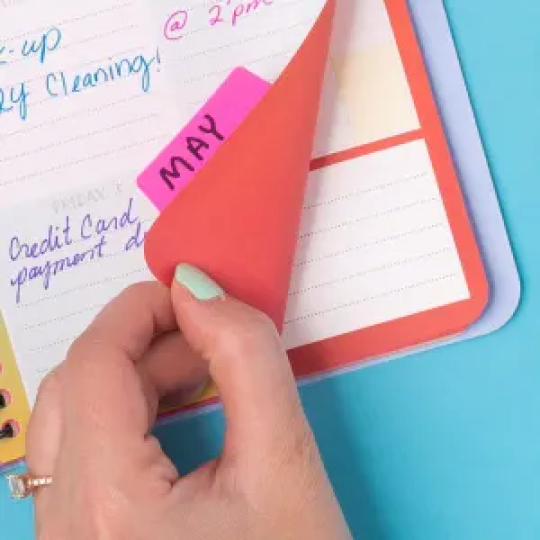 @ 2 pm
-up
Cleaning!
MAY
FRIDAY
Credit Card
payment d